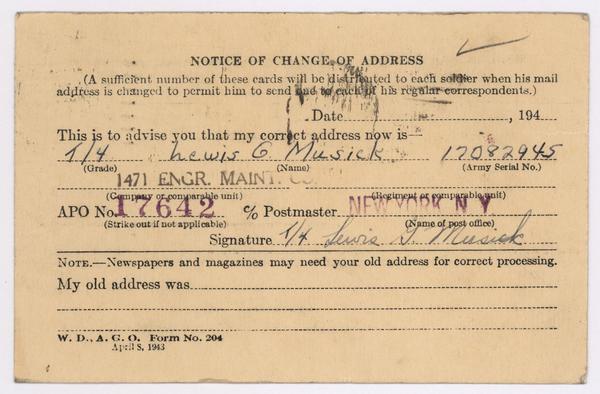 NOTICE OF CHANGE OF ADDRESS
(A sufficient number of these cards will be distributed to each soldier when his mail
address is changed to permit him to send one to each of his regular correspondents.)
Date , 194
This is to advise you that my correct address now is—
T/4 Lewis G. Musick 17082945
(Grade) (Name) (Army Serial No.)
1471 ENGR. MAINT. CO.
(Company or comparable unit) (Regiment or comparable unit)
APO No. 17642 % Postmaster NEW YORK N Y
(Strike out if not applicable) (Name of post office)
Signature T/4 Lewis G. Musick
NOTE.—Newspapers and magazines may need your old address for correct processing.
My old address was
W. D., A. G. O. Form No. 204
April 8, 1943